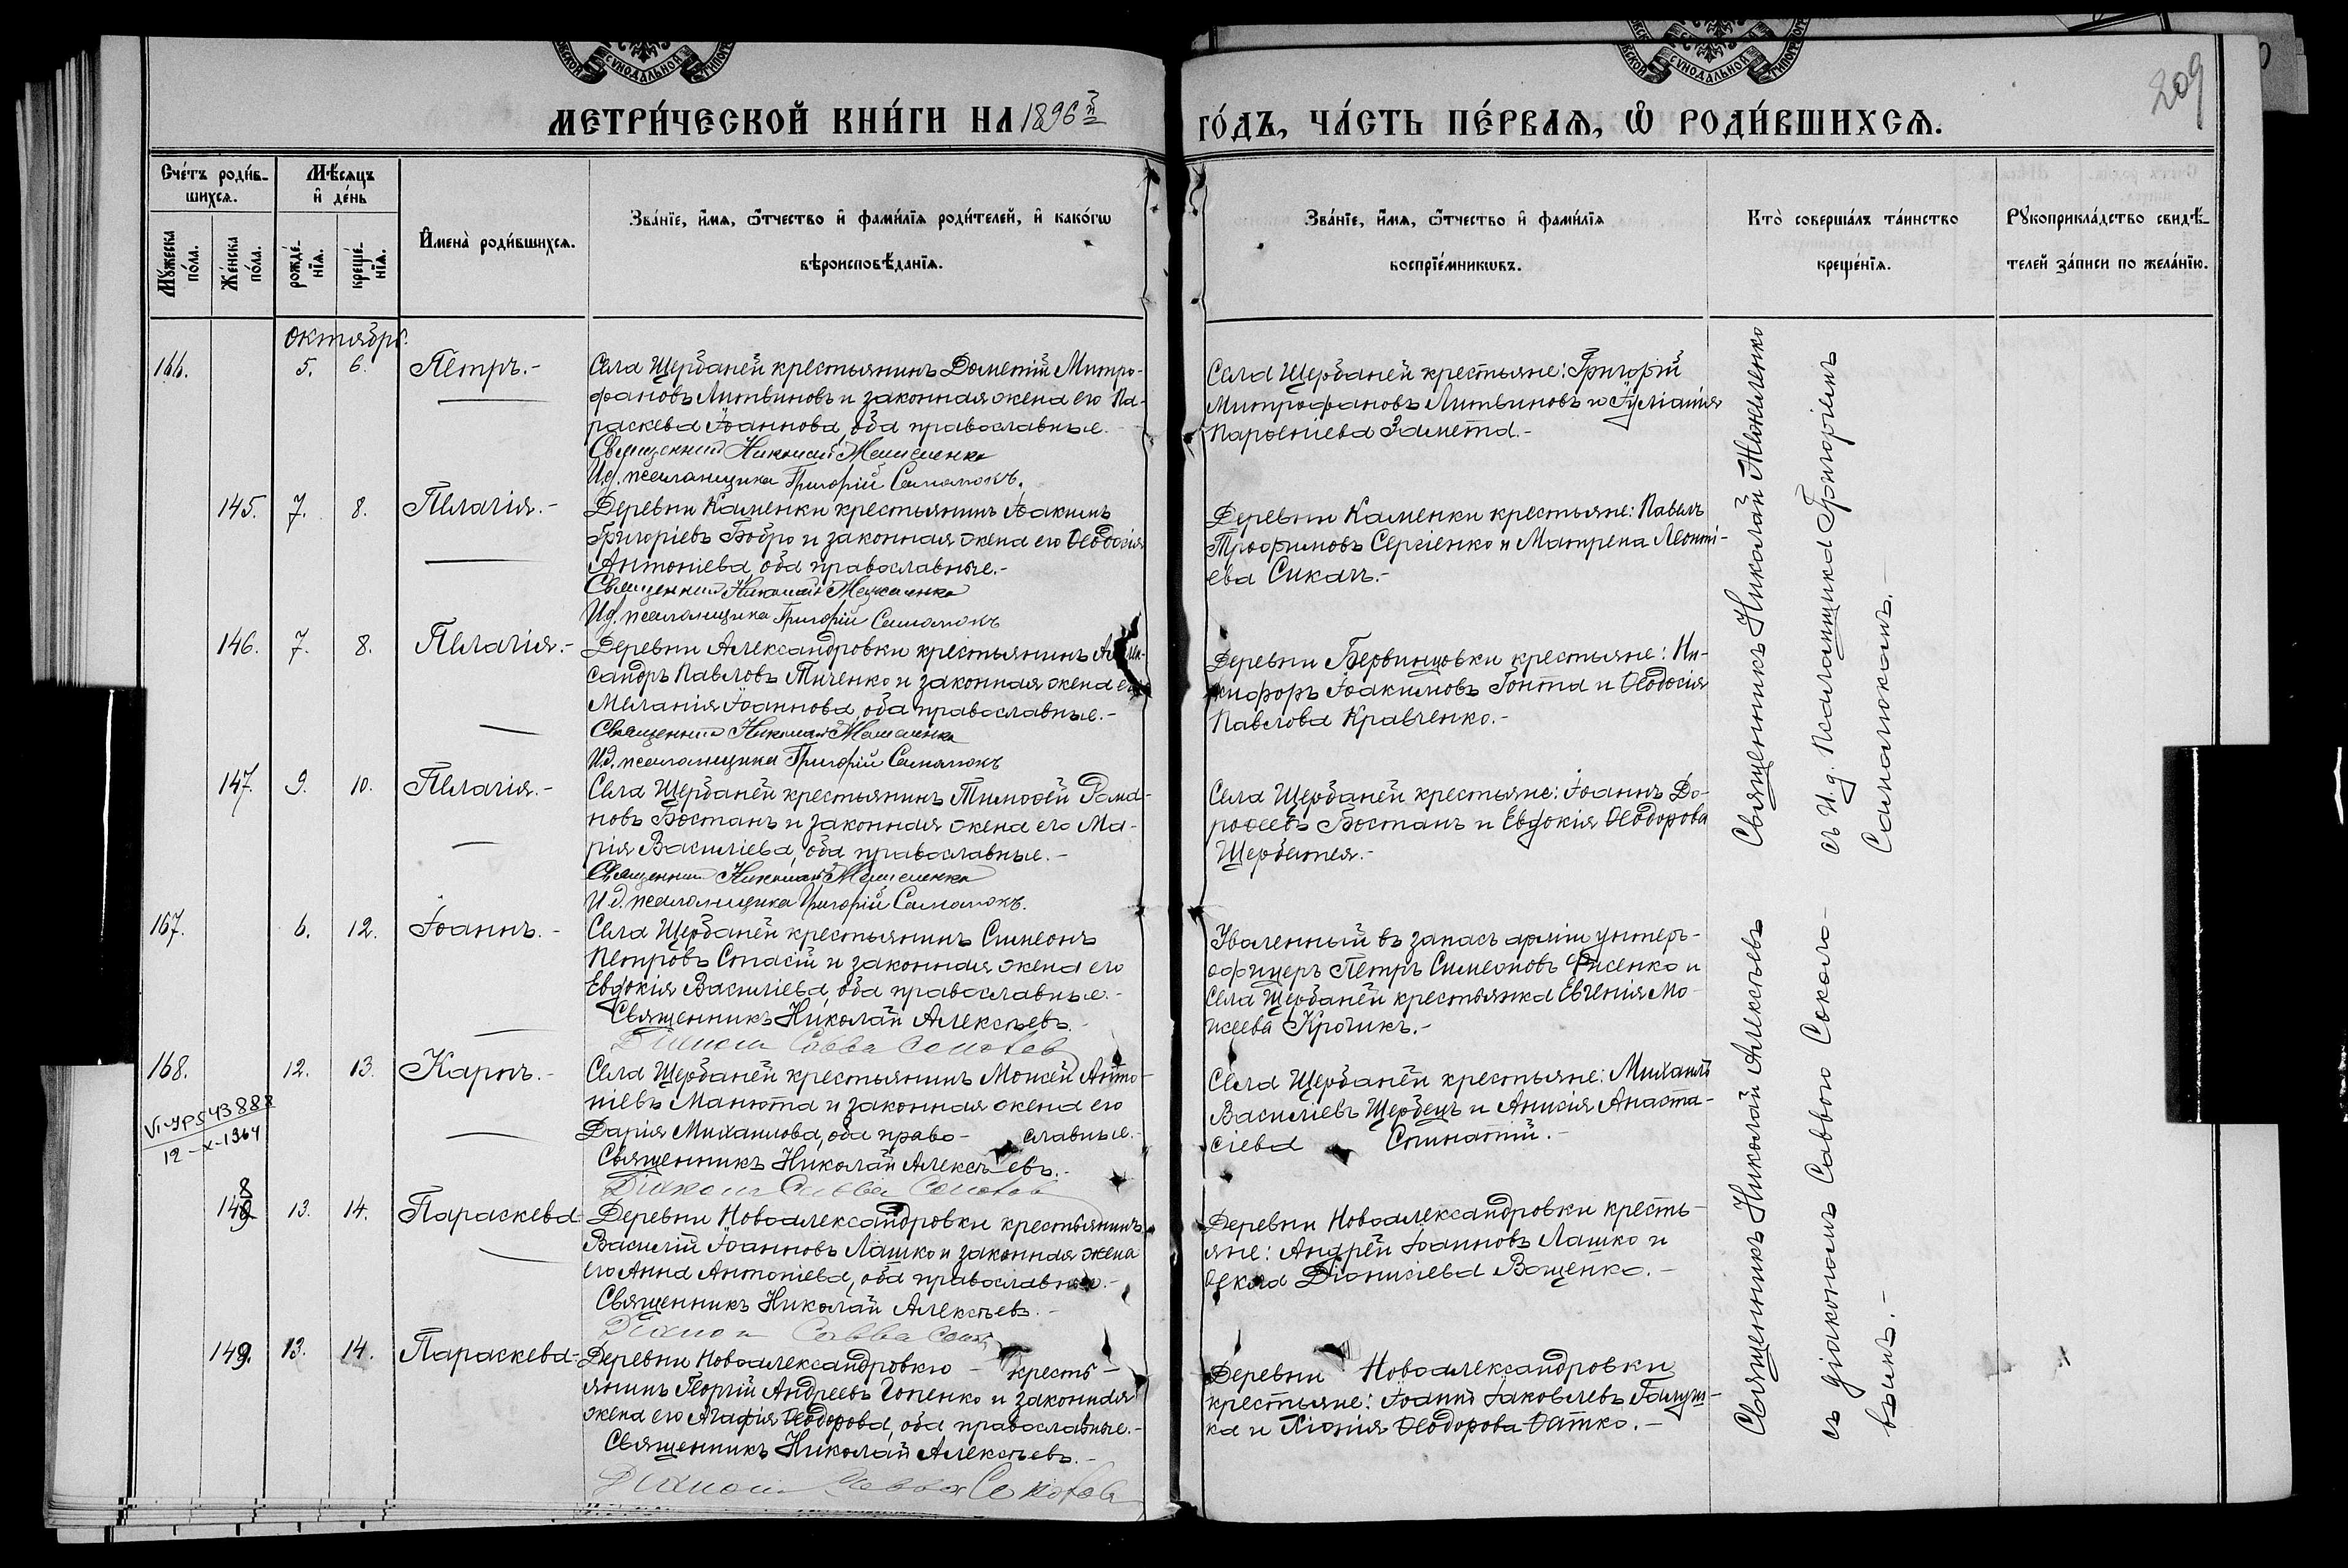 СѴНОДАЛЬНОЙ
СѴНОДАЛЬНОЙ ТИПОГРАФ
209
МЕТРИ́ЧЕСКОЙ КНИ́ГИ НА 1896й
ГО́ДЪ, ЧА́СТЬ ПЕ́РВАѦ, Ѡ҆ РОДИ́ВШИХСѦ.
Сче́тъ роди́в-
шихсѧ.
Мѣ́сѧцъ
и҆ де́нь
Мꙋ́жеска
по́ла.
Же́нска
по́ла.
рожде́-
нїѧ.
креще́-
нїѧ.
И҆мена̀ роди́вшихсѧ.
Зва́нїе, и҆́мѧ, ѻ҆́тчество и҆ фами́лїѧ роди́телей, и҆ како́гѡ
вѣроисповѣ́данїѧ.
Зва́нїе, и҆́мѧ, ѻ҆́тчество и҆ фами́лїѧ
воспрїе́мникѡвъ.
Кто̀ соверша́лъ та́инство
креще́нїѧ.
Рꙋкоприкла́дство свидѣ́-
телей за́писи по жела́нїю.
Октябрь
166. 5. 6. Петръ.-
Села Щербаней крестьянинъ Дометій Митро-
фановъ Литвиновъ и законная жена его Па-
раскева Іоаннова, оба православные.-
Священник Николай
И.д. псаломщика Григорій Самолюкъ.
Села Щербаней крестьяне: Григорій
Митрофановъ Литвиновъ и Іуліанія
Парѳеніева Замета.-
145. 7. 8. Пелагія.-
Деревни Каменки крестьянинъ Іоакимъ
Григоріевъ Бобро и законная жена его Ѳеодосія
Антоніева, оба православные.-
Священник Николай
И.д. псаломщика Григорій Самолюкъ
Деревни Каменки крестьяне: Павелъ
Трофимовъ Сергіенко и Матрена Леонті-
ева Сикач.-
146. 7. 8. Пелагія.-
Деревни Александровки крестьянинъ Алек-
сандръ Павловъ Тиченко и законная жена его
Меланія Іоаннова, оба православные.-
Священник Николай
И.д. псаломщика Григорій Самолюкъ
Деревни Бервинцовки крестьяне: Ни-
кифоръ Іоакимовъ Гонта и Ѳеодосія
Павлова Кравченко.-
147. 9. 10. Пелагія.-
Села Щербаней крестьянинъ Тимоѳей Рома-
новъ Бостанъ и законная жена его Ма-
рія Василіева, оба православные.-
Священник Николай
И.д. псаломщика Григорій Самолюкъ.
Села Щербаней крестьяне: Іоаннъ До-
роѳеевъ Бостанъ и Евдокія Ѳеодорова
Щербатея.-
167. 6. 12. Іоаннъ.-
Села Щербаней крестьянинъ Симеонъ
Петровъ Спасій и законная жена его
Евдокія Василіева, оба православные.-
Священникъ Николай Алексѣевъ.
Діакон Савва Соколов
Уволенный въ запасъ арміи унтеръ-
офицеръ Петръ Симеоновъ Фисенко и
села Щербаней крестьянка Евгенія Мо-
исеева Крочикъ.-
168. 12. 13. Карпъ.-
Села Щербаней крестьянинъ Моисей Анто-
ніевъ Манюта и законная жена его
Дарія Михаилова, оба право- славные.-
Священникъ Николай Алексѣевъ.-
Діакон Савва Соколов
Села Щербаней крестьяне: Михаилъ
Василіевъ Щербецъ и Анисія Анаста-
сіева Спинатій.-
VI-УР 543888
12-X-1964
148 13. 14. Параскева
Деревни Новоалександровки крестьянинъ
Василій Іоанновъ Лашко и законная жена
его Анна Антоніева, оба православные.-
Священникъ Николай Алексѣевъ.-
Діакон Савва Сокол
Деревни Новоалександровки кресть-
яне: Андрей Іоанновъ Лашко и
Ѳекла Діонисіева Ващенко.-
149. 13. 14. Параскева-
Деревни Новоалександровкю - кресть-
янинъ Георгій Андреевъ Гопенко и законная
жена его Агафія Ѳеодорова, оба православные.-
Священникъ Николай Алексѣевъ.-
Діакон Савва Соколов
Деревни Новоалександровки
крестьяне: Іоаннъ Іаковлевъ Галуш-
ка и Хіонія Ѳеодорова Ѳатко.-
Священникъ Николай
съ И.д. Псаломщика Григоріемъ
Самолюкомъ.-
Священникъ Николай Алексѣевъ
съ діакономъ Саввою Соколо-
вымъ.-